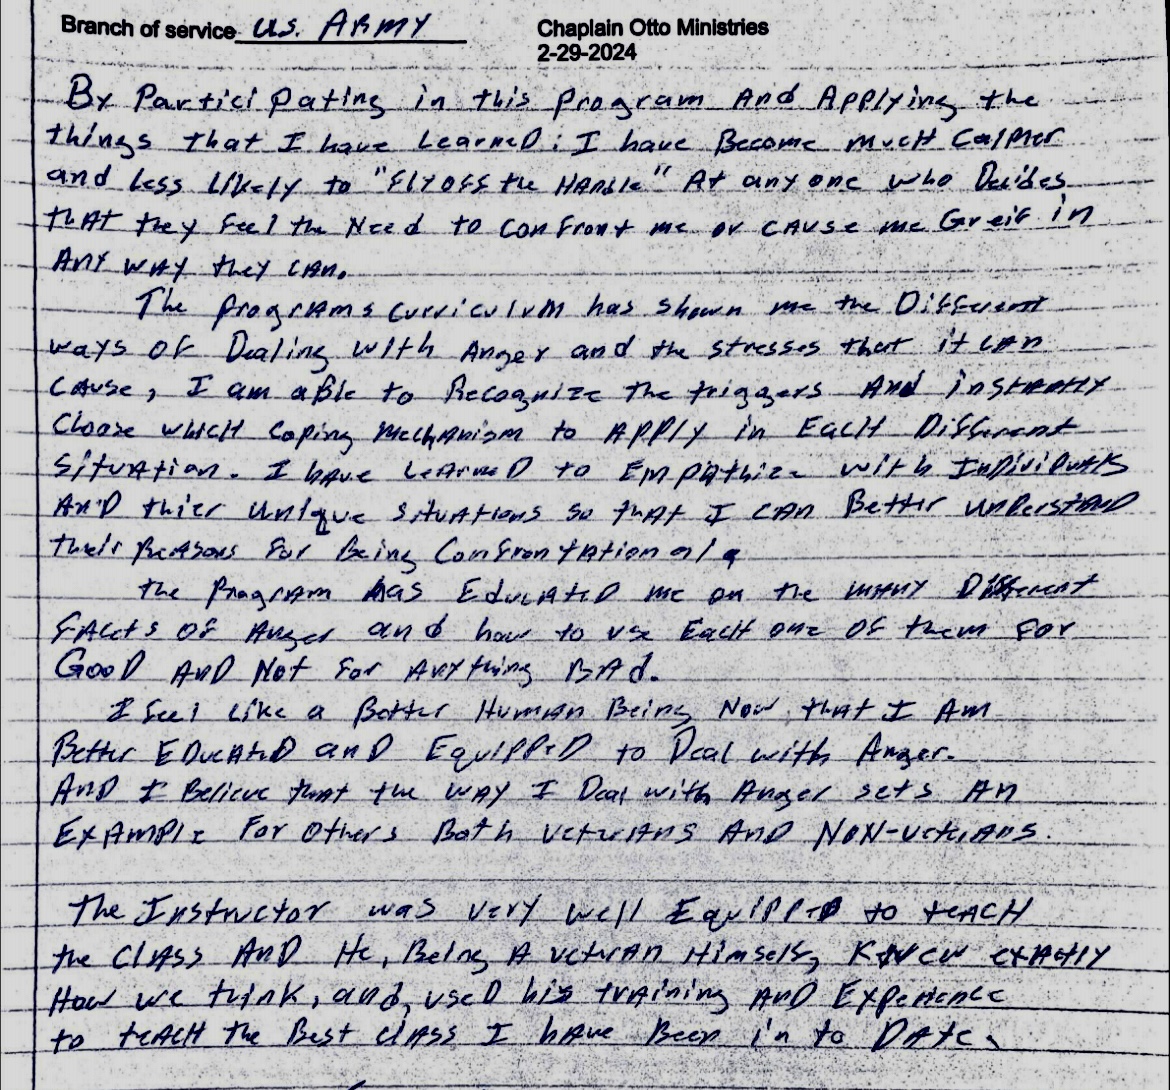 Branch of service U.S. ARMY
Chaplain Otto Ministries
2-29-2024
By Participating in this program And Applying the
things that I have Learned; I have Become much Calmer
and Less Likely to "Fly off the Handle" At anyone who Decides
that they feel the Need to confront me or cause me Greif in
Any way they can.
The programs curriculum has shown me the Different
ways of Dealing with Anger and the stresses that it can
cause, I am able to Recognize the triggers And instantly
Choose which coping Mechanism to apply in Each Different
situation. I have Learned to Empathize with Individuals
And thier unique situations so that I can Better understand
their Reasons for Being Confrontational.
the Program has Educated me on the many Different
facets of Anger and how to use Each one of them for
Good And Not for Anything Bad.
I feel Like a Better Human Being Now that I Am
Better Educated and Equipped to Deal with Anger.
And I Believe that the way I Deal with Anger sets An
Example for others Both veterans And Non-veterans.
The Instructor was very well Equipped to teach
the class And He, Being A veteran Himself, Knew exactly
How we think, and, used his training And Experience
to teach the Best class I have Been in to Date.